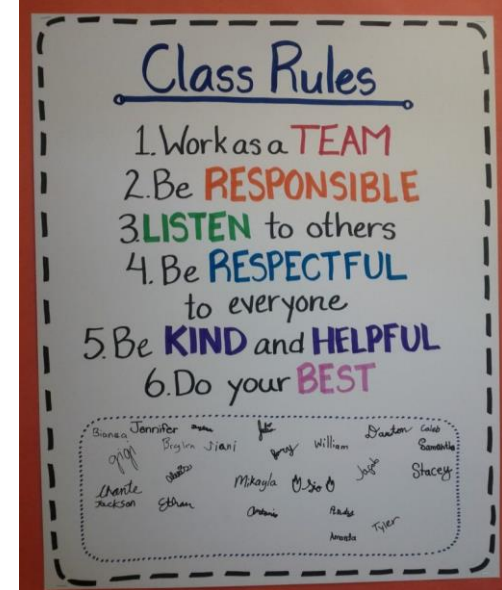 Class Rules
1. Work as a TEAM
2. Be RESPONSIBLE
3. LISTEN to others
4. Be RESPECTFUL
to everyone
5. Be KIND and HELPFUL
6. Do your BEST
Bianca Jennifer Danton Caleb
gigi Jiani William Samantha
Mikayla Stacey
Chante
Jackson Ethan Antonio
Amanda Tyler